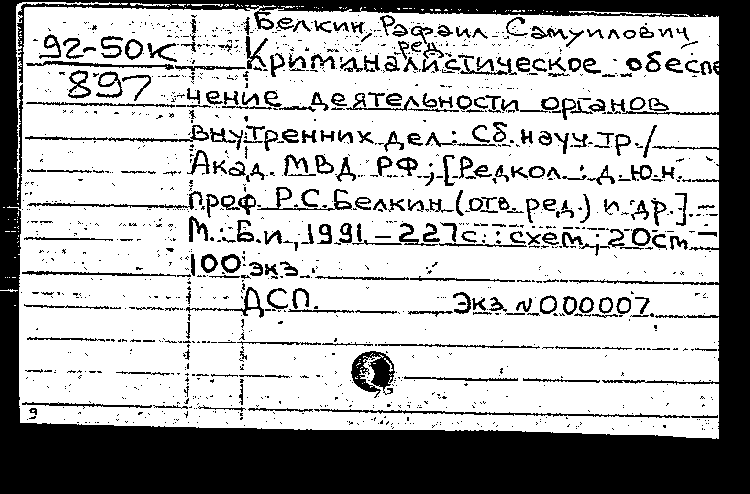 Белкин, Рафаил Самуилович
ред.
92-50К
897
Криминалистическое обеспе
чение деятельности органов
внутренних дел : Сб. науч. тр. /
Акад. МВД РФ ; [Редкол. : д. ю. н.
проф. Р. С. Белкин (отв. ред.) и др.] . —
М. : Б. и , 1991 . — 227 с. : схем ; 20 см —
100 экз .
ДСП. Экз № 000007
9